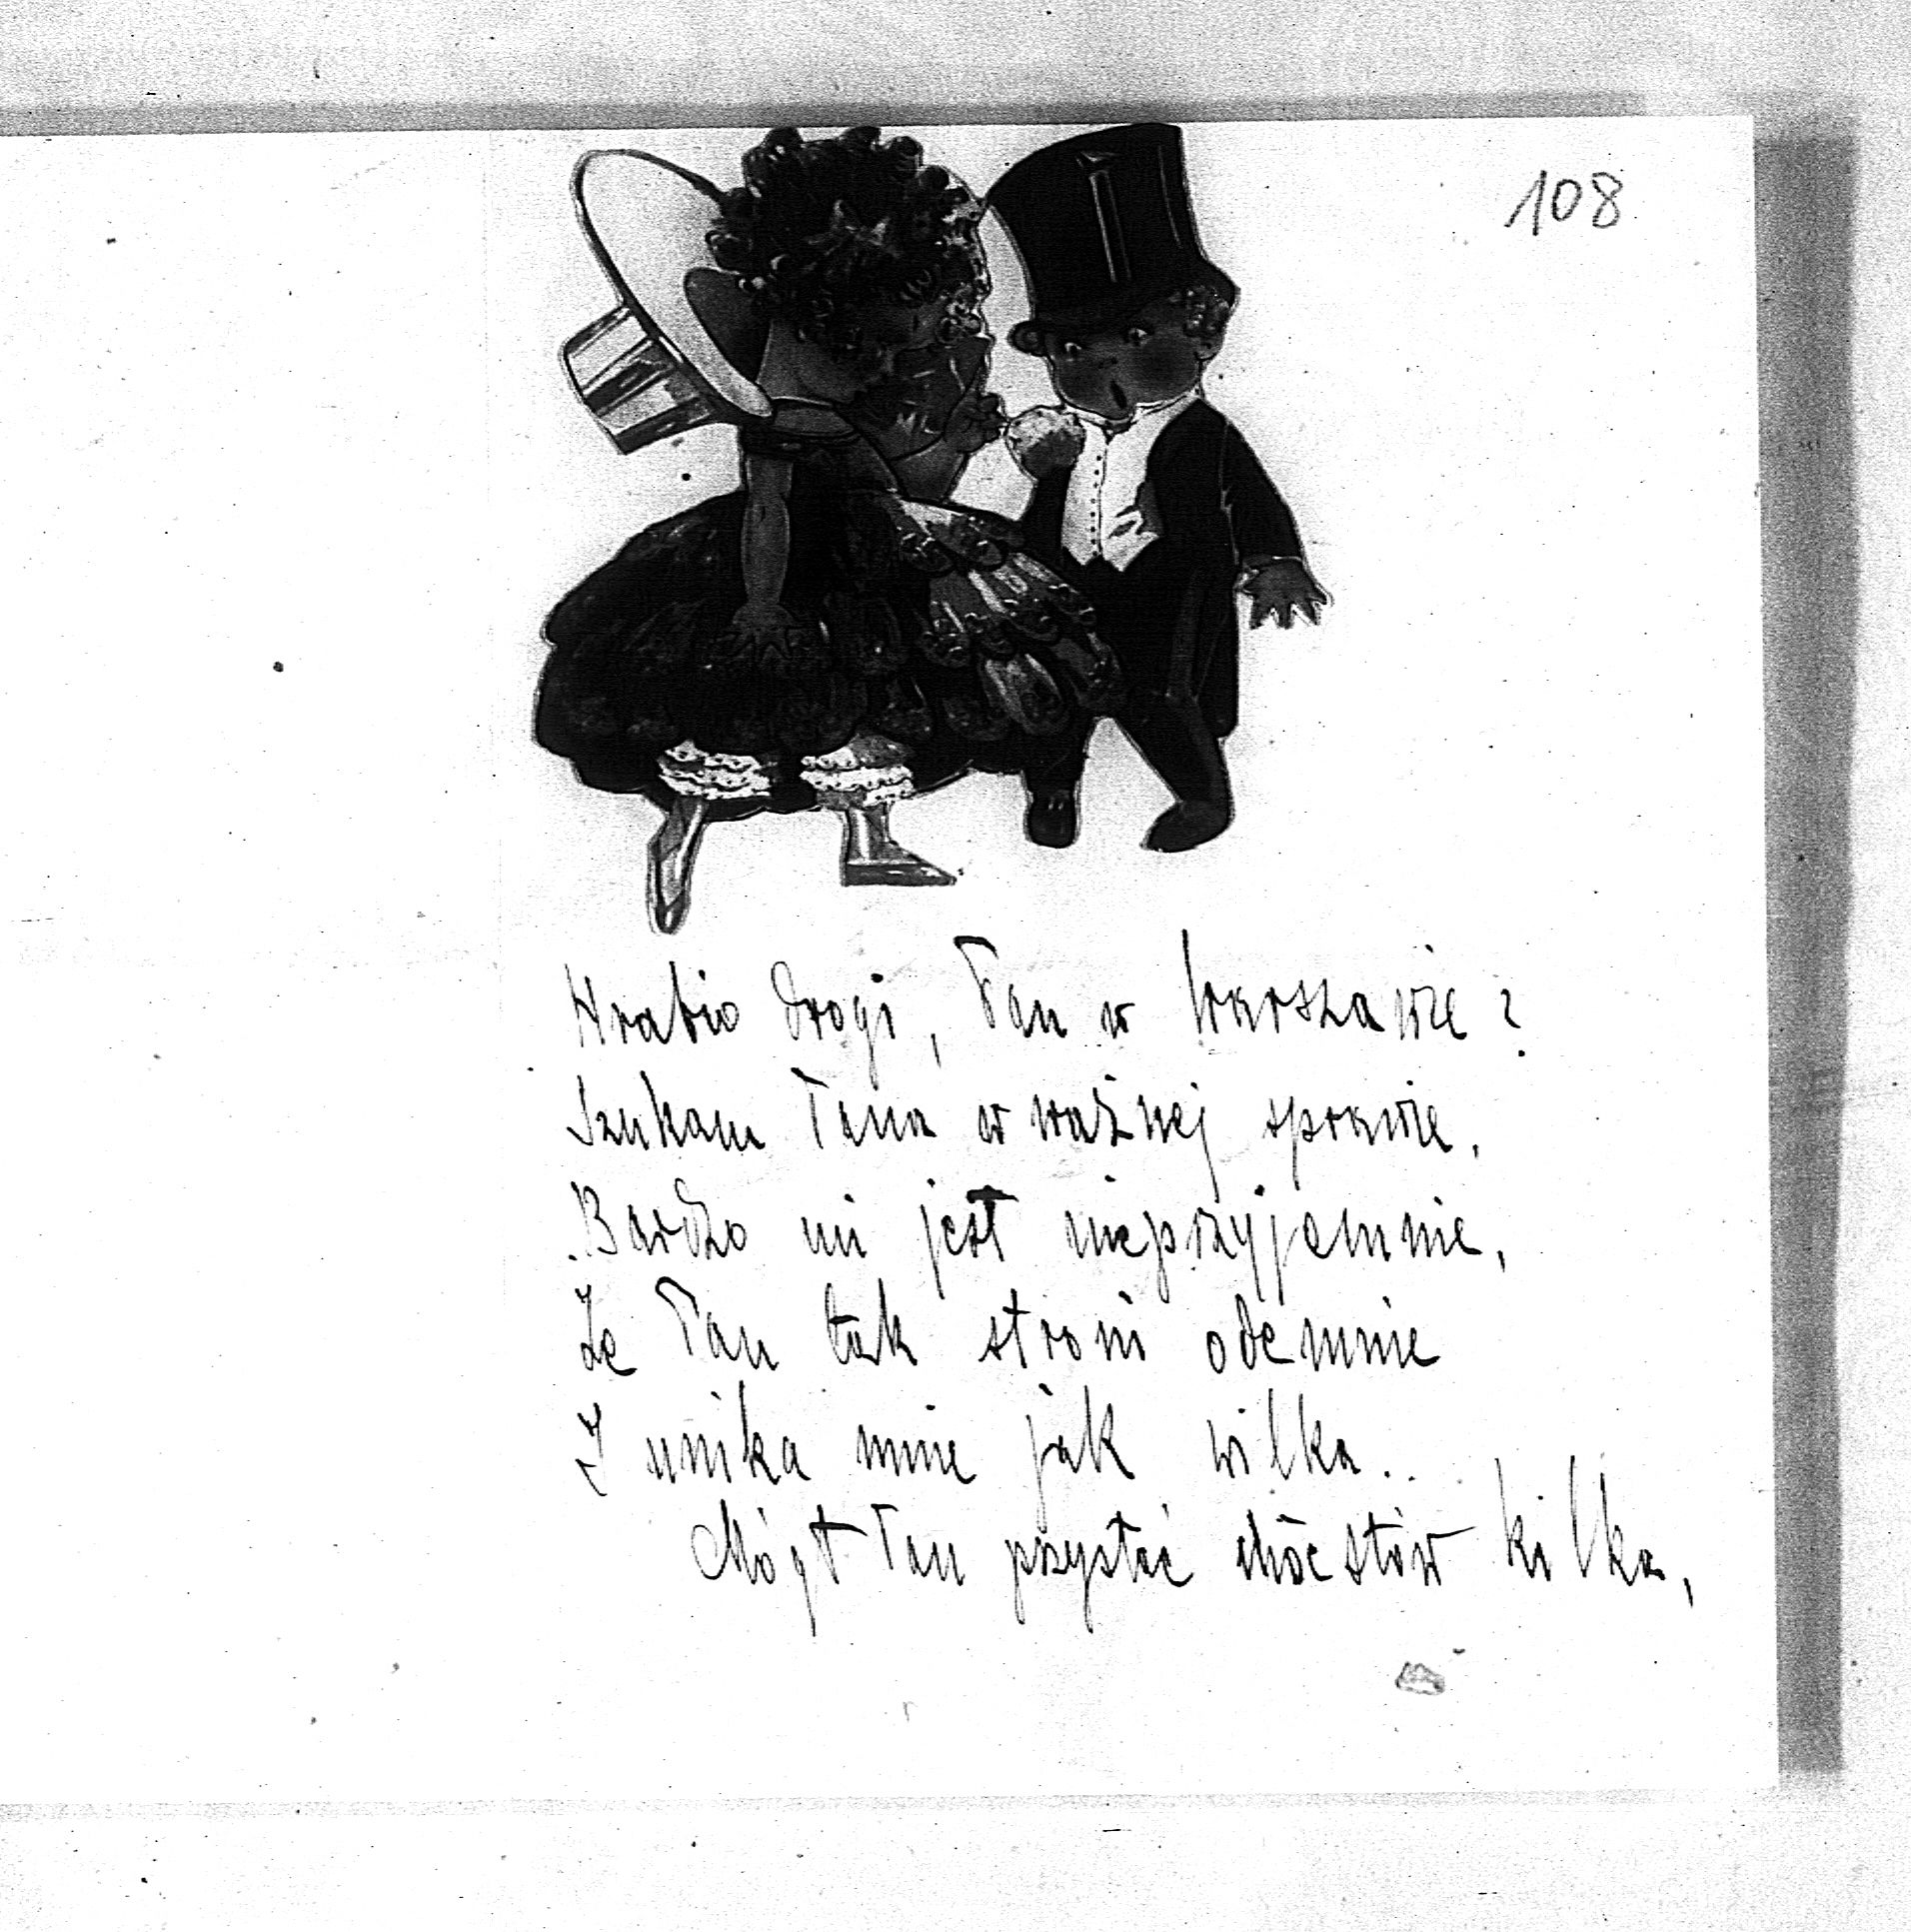 108
Hrabio drogi, Pan w Warszawie?
Szukam Pana w ważnej sprawie.
Bardzo mi jest nieprzyjemnie,
Że Pan tak stroni odemnie
I unika mnie jak wilka..
Mógł Pan przysłać choć słów kilka,